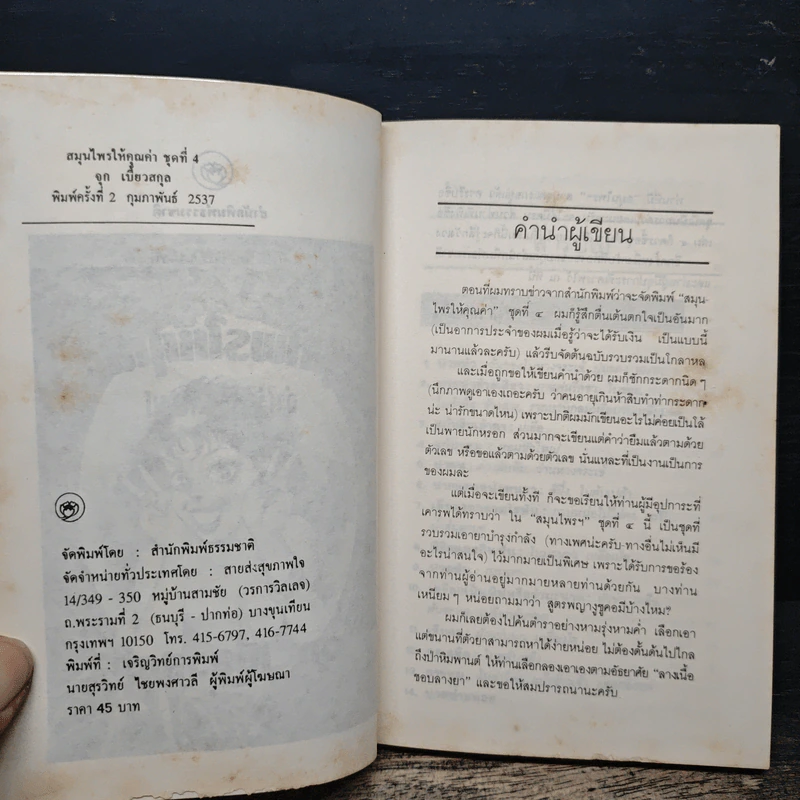 สมุนไพรให้คุณค่า ชุดที่ 4
จุก เบี้ยวสกุล
พิมพ์ครั้งที่ 2 กุมภาพันธ์ 2537
จัดพิมพ์โดย : สำนักพิมพ์ธรรมชาติ
จัดจำหน่ายทั่วประเทศโดย : สายส่งสุขภาพใจ
14/349 - 350 หมู่บ้านสามชัย (วรการวิลเลจ)
ถ.พระรามที่ 2 (ธนบุรี - ปากท่อ) บางขุนเทียน
กรุงเทพฯ 10150 โทร. 415-6797, 416-7744
พิมพ์ที่ : เจริญวิทย์การพิมพ์
นายสุรวิทย์ ไชยพงศาวลี ผู้พิมพ์ผู้โฆษณา
ราคา 45 บาท
คำนำผู้เขียน
ตอนที่ผมทราบข่าวจากสำนักพิมพ์ว่าจะจัดพิมพ์ “สมุน-
ไพรให้คุณค่า” ชุดที่ ๔ ผมก็รู้สึกตื่นเต้นตกใจเป็นอันมาก
(เป็นอาการประจำของผมเมื่อรู้ว่าจะได้รับเงิน เป็นแบบนี้
มานานแล้วละครับ) แล้วรีบจัดต้นฉบับรวบรวมเป็นโกลาหล
และเมื่อถูกขอให้เขียนคำนำด้วย ผมก็ชักกระดากนิดๆ
(นึกภาพดูเอาเองเถอะครับ ว่าคนอายุเกินห้าสิบทำท่ากระดาก
น่ะ น่ารักขนาดไหน) เพราะปกติผมมักเขียนอะไรไม่ค่อยเป็นโล้
เป็นพายนักหรอก ส่วนมากจะเขียนแต่คำว่ายืมแล้วตามด้วย
ตัวเลข หรือขอแล้วตามด้วยตัวเลข นั่นแหละที่เป็นงานเป็นการ
ของผมละ
แต่เมื่อจะเขียนทั้งที ก็จะขอเรียนให้ท่านผู้มีอุปการะที่
เคารพได้ทราบว่า ใน “สมุนไพรฯ” ชุดที่ ๔ นี้ เป็นชุดที่
รวบรวมเอายาบำรุงกำลัง (ทางเพศน่ะครับ-ทางอื่นไม่เห็นมี
อะไรน่าสนใจ) ไว้มากมายเป็นพิเศษ เพราะได้รับการขอร้อง
จากท่านผู้อ่านอยู่มากมายหลายท่านด้วยกัน บางท่าน
เหนียมๆ หน่อยถามมาว่า สูตรพญางูชูคอมีบ้างไหม?
ผมก็เลยต้องไปค้นตำราอย่างหามรุ่งหามค่ำ เลือกเอา
แต่ขนานที่ตัวยาสามารถหาได้ง่ายหน่อย ไม่ต้องดั้นด้นไปไกล
ถึงป่าหิมพานต์ ให้ท่านเลือกลองเอาเองตามอัธยาศัย “ลางเนื้อ
ชอบลางยา” และขอให้สมปรารถนานะครับ